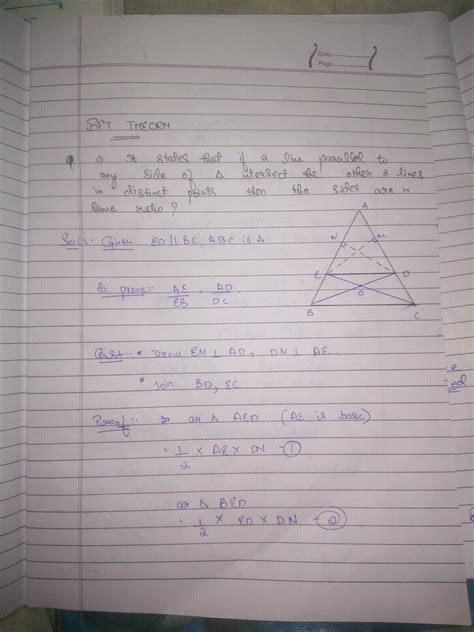 Date
Page
BPT THEORM
⇒ It states that if a line parallel to
any side of Δ intersect the other 2 lines
in distinct points then the sides are in
same ratio?
Soln- Given ED || BC, ABC is Δ
To prove:- AE/EB = AD/DC
A
N M
E D
O
B C
Const:- * Draw EM ⊥ AD, DN ⊥ AE.
* Join BD, EC
Proof:- ar Δ AED (AE is base)
= 1/2 × AE × DN - ①
ar Δ BED
= 1/2 × ED × DN - ②